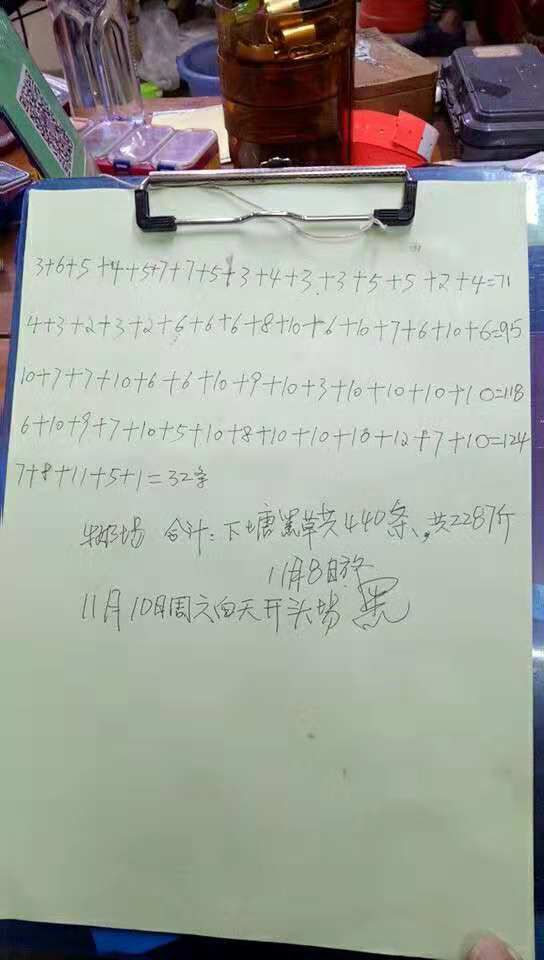 3+6+5+4+5+7+7+5+3+4+3+3+5+5+2+4=71
4+3+2+3+2+6+6+6+8+10+6+10+7+6+10+6=95
10+7+7+10+6+6+10+9+10+3+10+10+10+10=118
6+10+9+7+10+5+10+8+10+10+10+12+7+10=124
7+8+11+5+1=32条
合计:下塘黑草共440条、共2287斤
11月8日放
11月10日周六白天开头场 黑